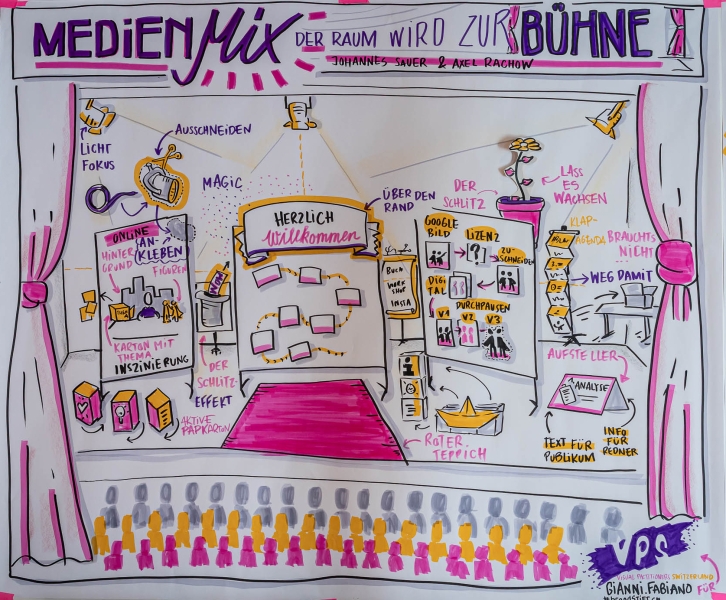 MEDiEN Mix DER RAUM WIRD ZUR BÜHNE
JOHANNES SAUER & AXEL RACHOW
LICHT
FOKUS
AUSSCHNEIDEN
MAGIC
ONLINE
AN-
KLEBEN
HINTER
GRUND
FIGUREN
KARTON MIT
THEMA
INSZINIERUNG
DER
SCHLITZ-
EFFEKT
AKTIVE
PAPKARTON
HERZLICH
Willkommen
ÜBER DEN
RAND
BUCH
WORK
SHOP
INSTA
DER
SCHLITZ
LASS
ES
WACHSEN
GOOGLE
BILD
LIZENZ
ZU-
SCHNEIDEN
DIGI
TAL
DURCHPAUSEN
V1
V2
V3
KLAP-
AGENDA
BRAUCHTS
NICHT
WEG DAMIT
AUFSTELLER
ANALYSE
TEXT FÜR
PUBLIKUM
INFO
FÜR
REDNER
ROTER
TEPPICH
VPS
VISUAL PRACTITIONERS SWITZERLAND
GIANNI.FABIANO
FÜR